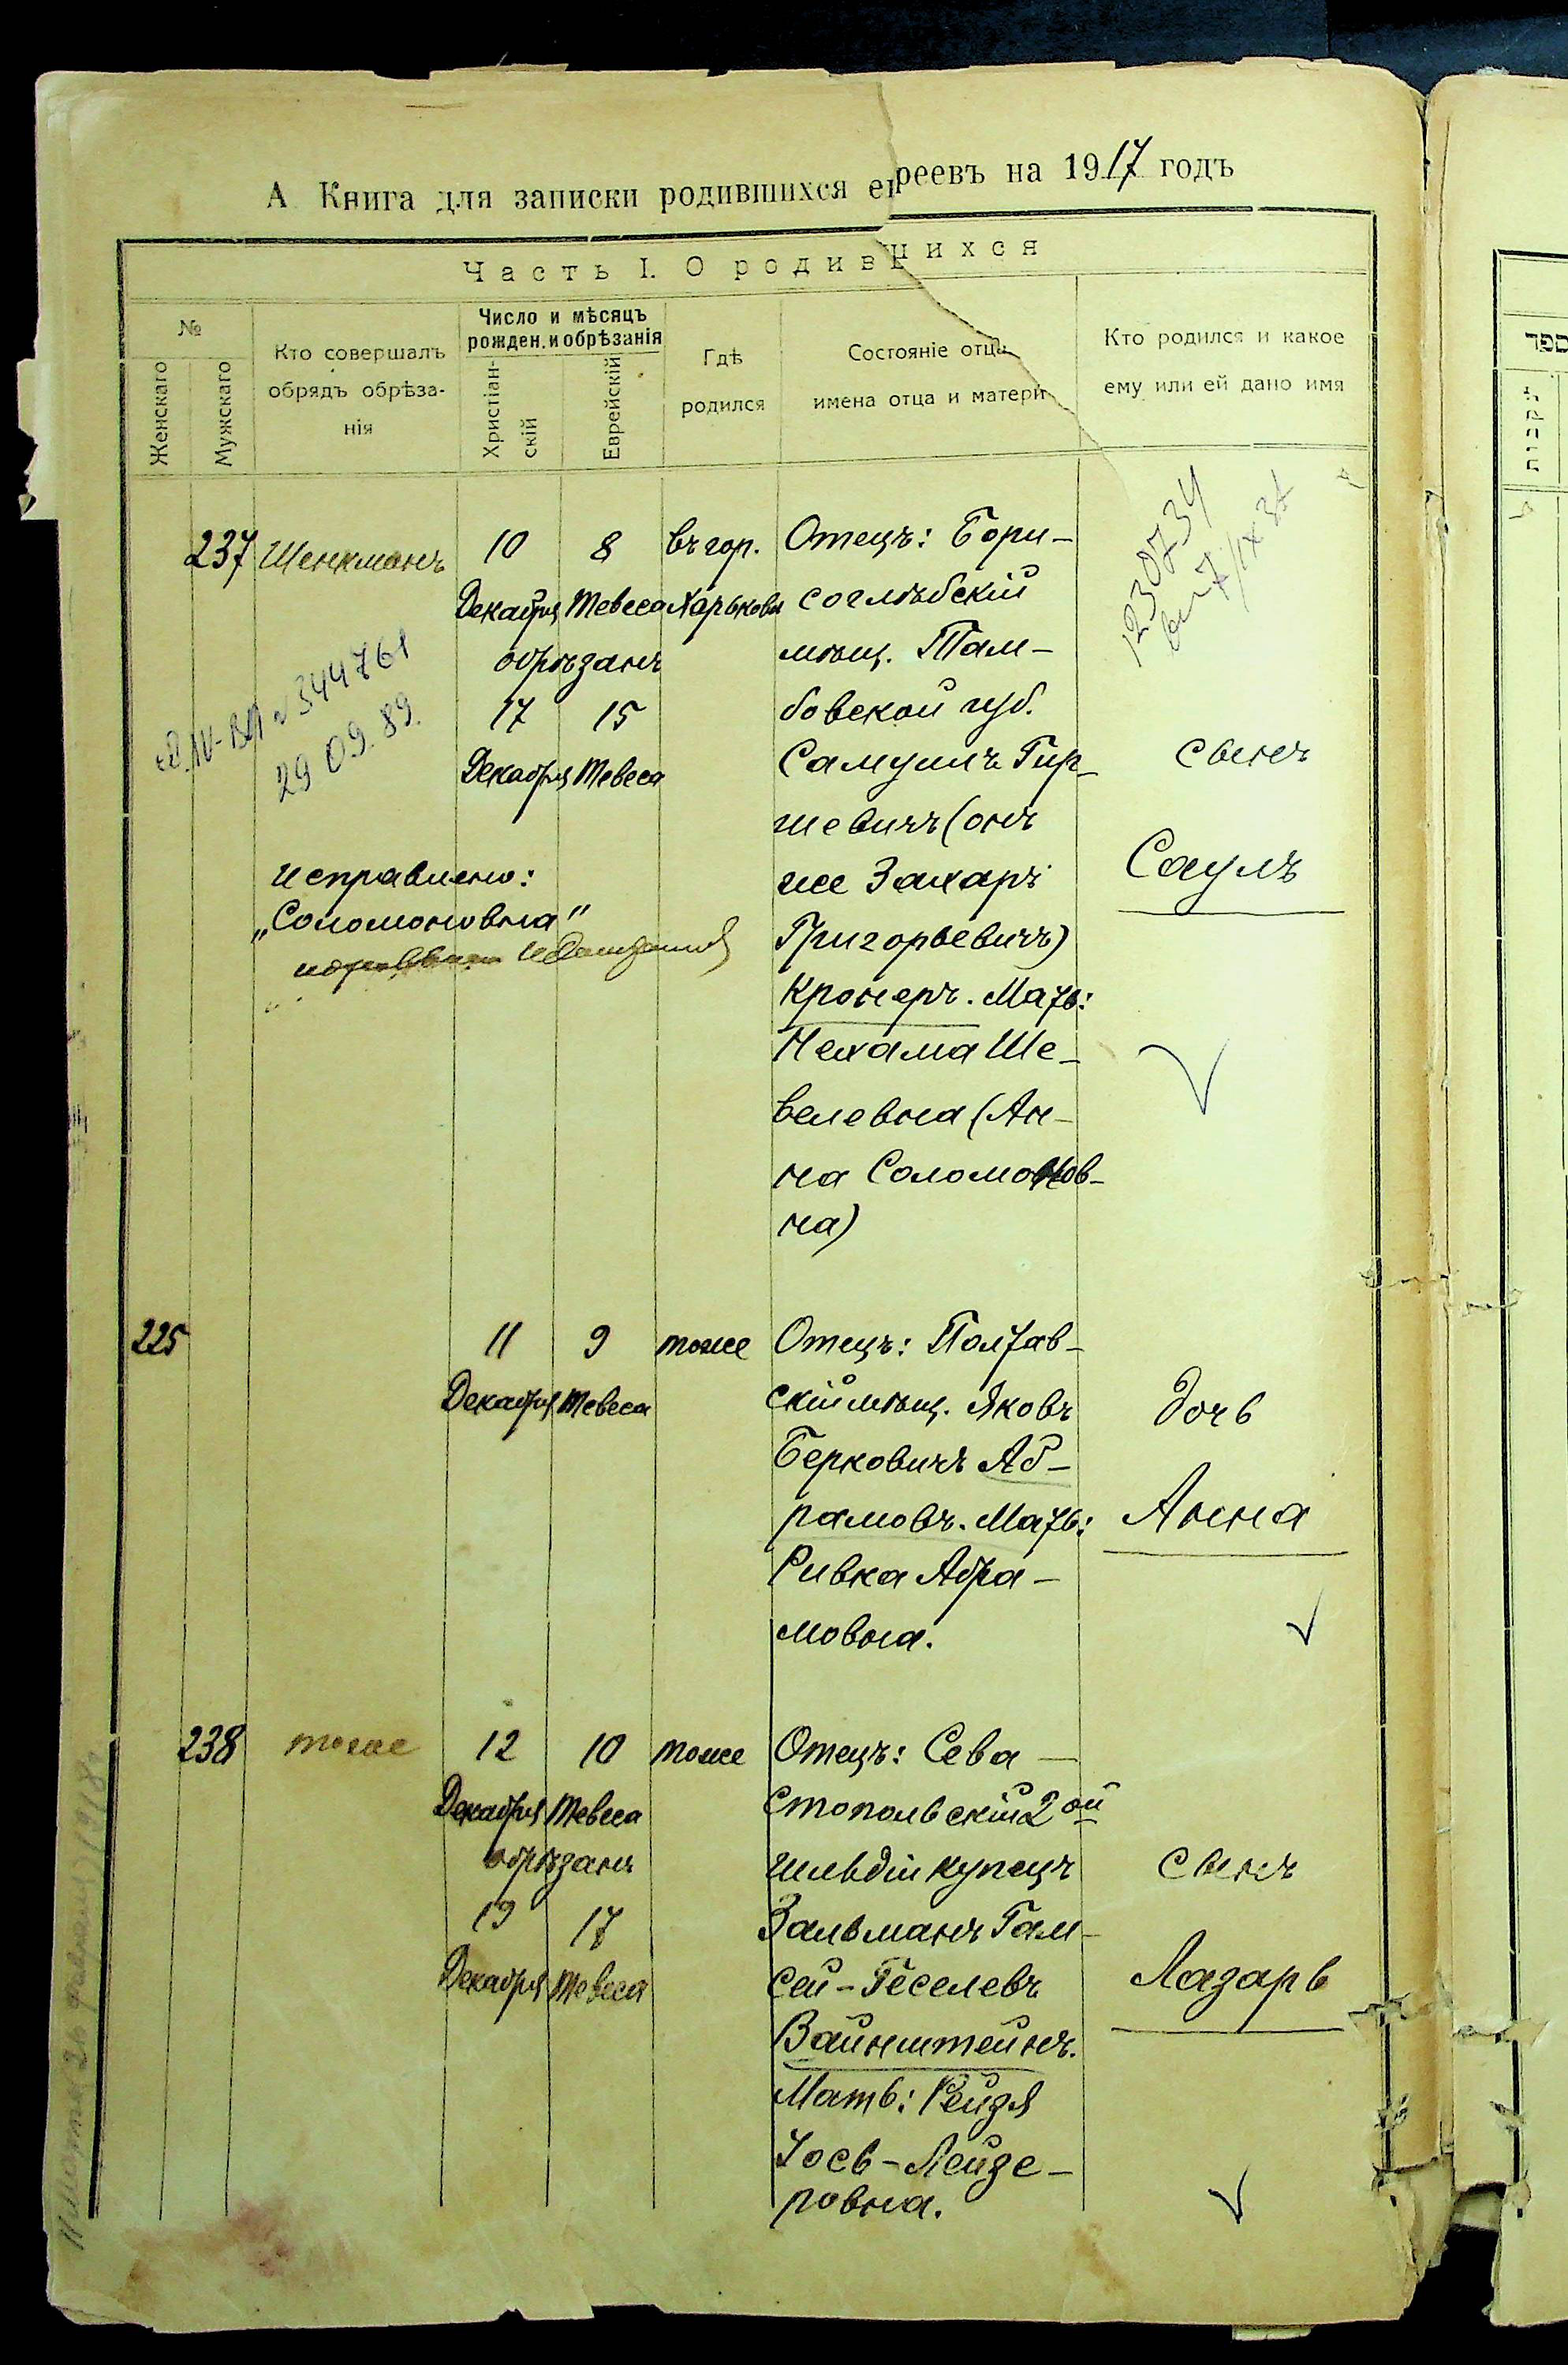 А Книга для записки родившихся евреевъ на 1917 годъ
Часть I. О родившихся
№
Женскаго
Мужскаго
Кто совершалъ
обрядъ обрѣза-
нія
Число и мѣсяцъ
рожден. и обрѣзанія
Христіан-
скій
Еврейскій
Гдѣ
родился
Состояніе отца
имена отца и матери
Кто родился и какое
ему или ей дано имя
237 Шенкманъ
10 Декабря
8 Тевеса
обрѣзанъ
17 Декабря
15 Тевеса
въ гор.
Харьковѣ
Отецъ: Бори-
соглѣбскій
мѣщ. Там-
бовской губ.
Самуилъ Гир-
шевичъ (онъ
же Захаръ
Григорьевичъ)
Кронеръ. Мать:
Нехама Ше-
велевна (Ан-
на Соломонов-
на)
сынъ
Саулъ
1230734
7/IX 37
№ 344761
29.09.89.
Исправлено:
„Соломоновна"
225
11 Декабря
9 Тевеса
тоже
Отецъ: Полтав-
скій мѣщ. Яковъ
Берковичъ Аб-
рамовъ. Мать:
Ривка Абра-
мовна.
дочь
Анна
238
тоже
12 Декабря
10 Тевеса
обрѣзанъ
19 Декабря
17 Тевеса
тоже
Отецъ: Сева-
стопольскій 2ой
гильдіи купецъ
Зальманъ Гам-
сей-Геселевъ
Вайнштейнъ.
Мать: Рейзя
Іось-Лейзе-
ровна.
сынъ
Лазарь
ספר